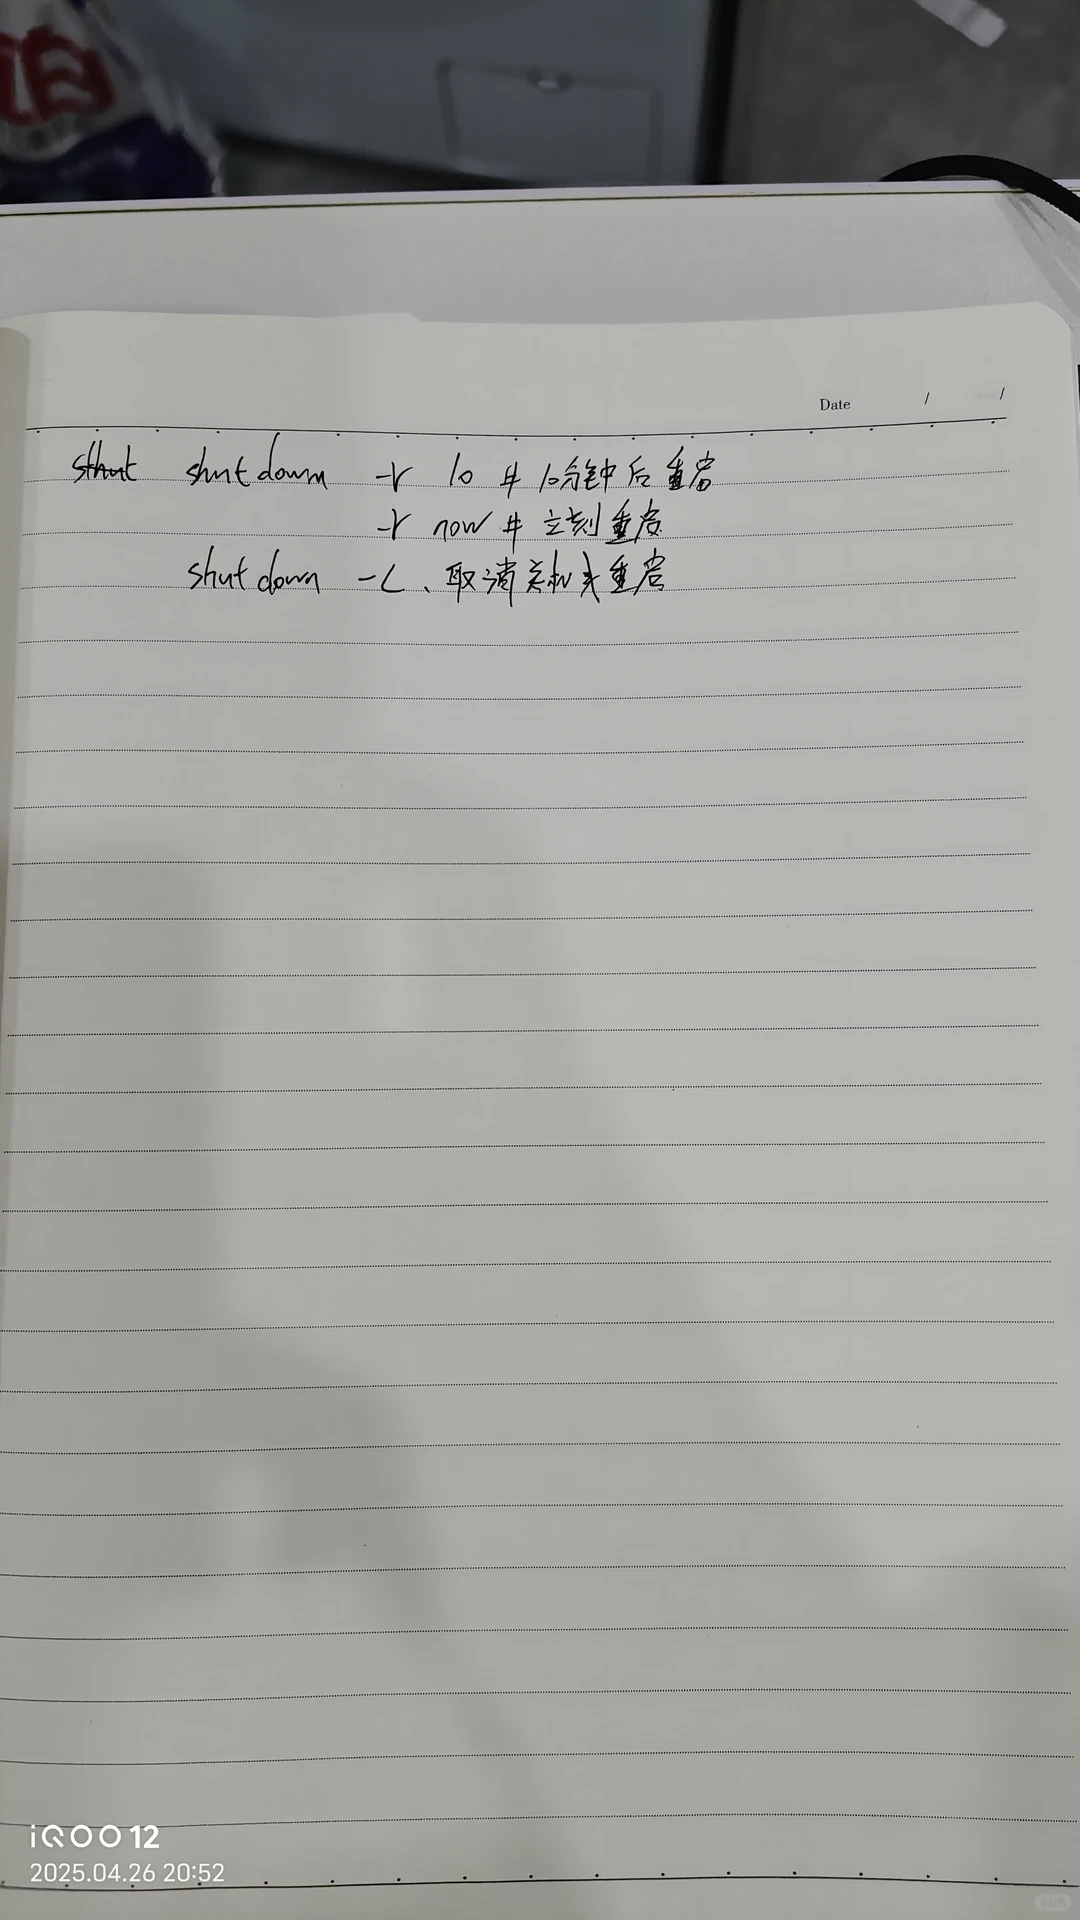 白
Date / /
sthut shutdown -r 10 # 10分钟后重启
-r now # 立刻重启
shutdown -c、取消关机或重启
iQOO 12
2025.04.26 20:52